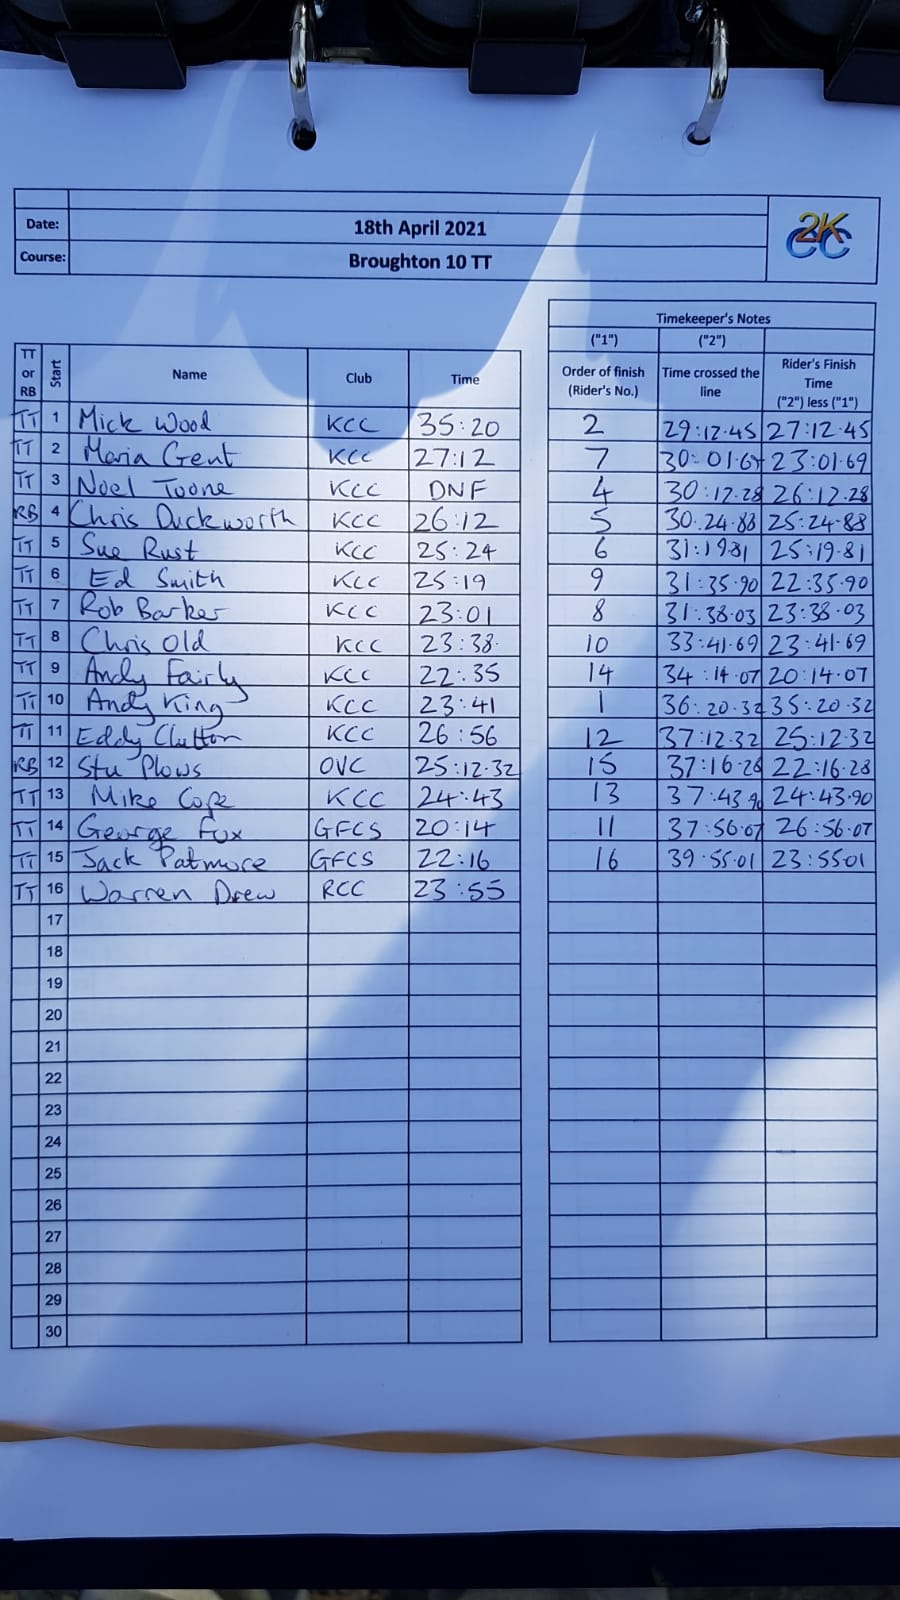 Date: 18th April 2021 2KCC
Course: Broughton 10 TT
Timekeeper's Notes
("1") ("2")
TT or RB Start Name Club Time Order of finish (Rider's No.) Time crossed the line Rider's Finish Time ("2") less ("1")
TT 1 Mick Wood KCC 35:20 2 29:12.45 27:12.45
TT 2 Maria Gent KCC 27:12 7 30:01.69 23:01.69
TT 3 Noel Toone KCC DNF 4 30:12.28 26:12.28
RB 4 Chris Duckworth KCC 26:12 5 30.24.88 25:24.88
TT 5 Sue Rust KCC 25:24 6 31:1981 25:19.81
TT 6 Ed Smith KCC 25:19 9 31:35.90 22:35.90
TT 7 Rob Barker KCC 23:01 8 31:38.03 23:38.03
TT 8 Chris Old KCC 23:38. 10 33:41.69 23:41.69
TT 9 Andy Fairly KCC 22:35 14 34:14.07 20:14.07
TT 10 Andy King KCC 23:41 1 36:20.32 35:20.32
TT 11 Eddy Clutton KCC 26:56 12 37:12.32 25:12.32
RB 12 Stu Plows OVC 25:12.32 15 37:16.28 22:16.28
TT 13 Mike Cope KCC 24:43 13 37:43.90 24:43.90
TT 14 George Fox GFCS 20:14 11 37:56.07 26:56.07
TT 15 Jack Patmore GFCS 22:16 16 39:55.01 23:5501
TT 16 Warren Drew RCC 23:55
17
18
19
20
21
22
23
24
25
26
27
28
29
30